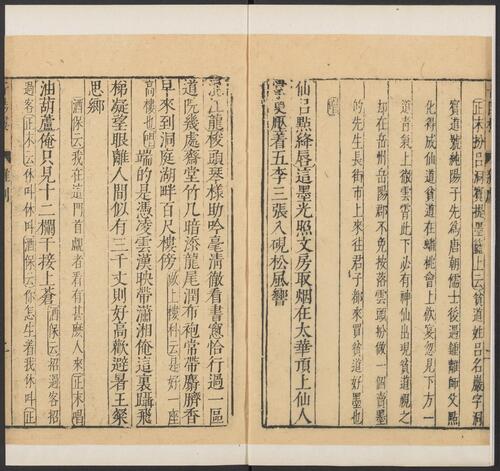 正末扮呂洞賓提墨籃上云貧道姓呂名巖字洞
賓道號純陽子先爲唐朝儒士後遇鍾離師父點
化得成仙道貧道在蟠桃會上飲宴忽見下方一
道靑氣上徹雲霄此下必有神仙出現貧道視之
却在岳州岳陽郡不免按落雲頭扮做一個賣墨
的先生長街市上來往君子都來買貧道好墨也
唱
仙呂點絳唇這墨光照文房取烟在太華頂上仙人
掌更壓着五李三張入硯松風響
混江龍梭頭琴樣助吟毫淸徹看書愈恰行過一區
道院幾處齋堂竹几暗添龍尾潤布袍常帶麝臍香
早來到洞庭湖畔百尺樓傍做上樓科云是好一座
高樓也唱端的是憑凌雲漢映帶瀟湘俺這裏躡飛
梯凝望眼離人間似有三千丈則好高歡避暑王粲
思鄉
酒保云我在這門首覷者看有甚麽人來正末唱
油葫蘆俺只見十二欄干接上蒼酒保云招過客招
過客正末云休叫休叫酒保云你怎生着我休叫正